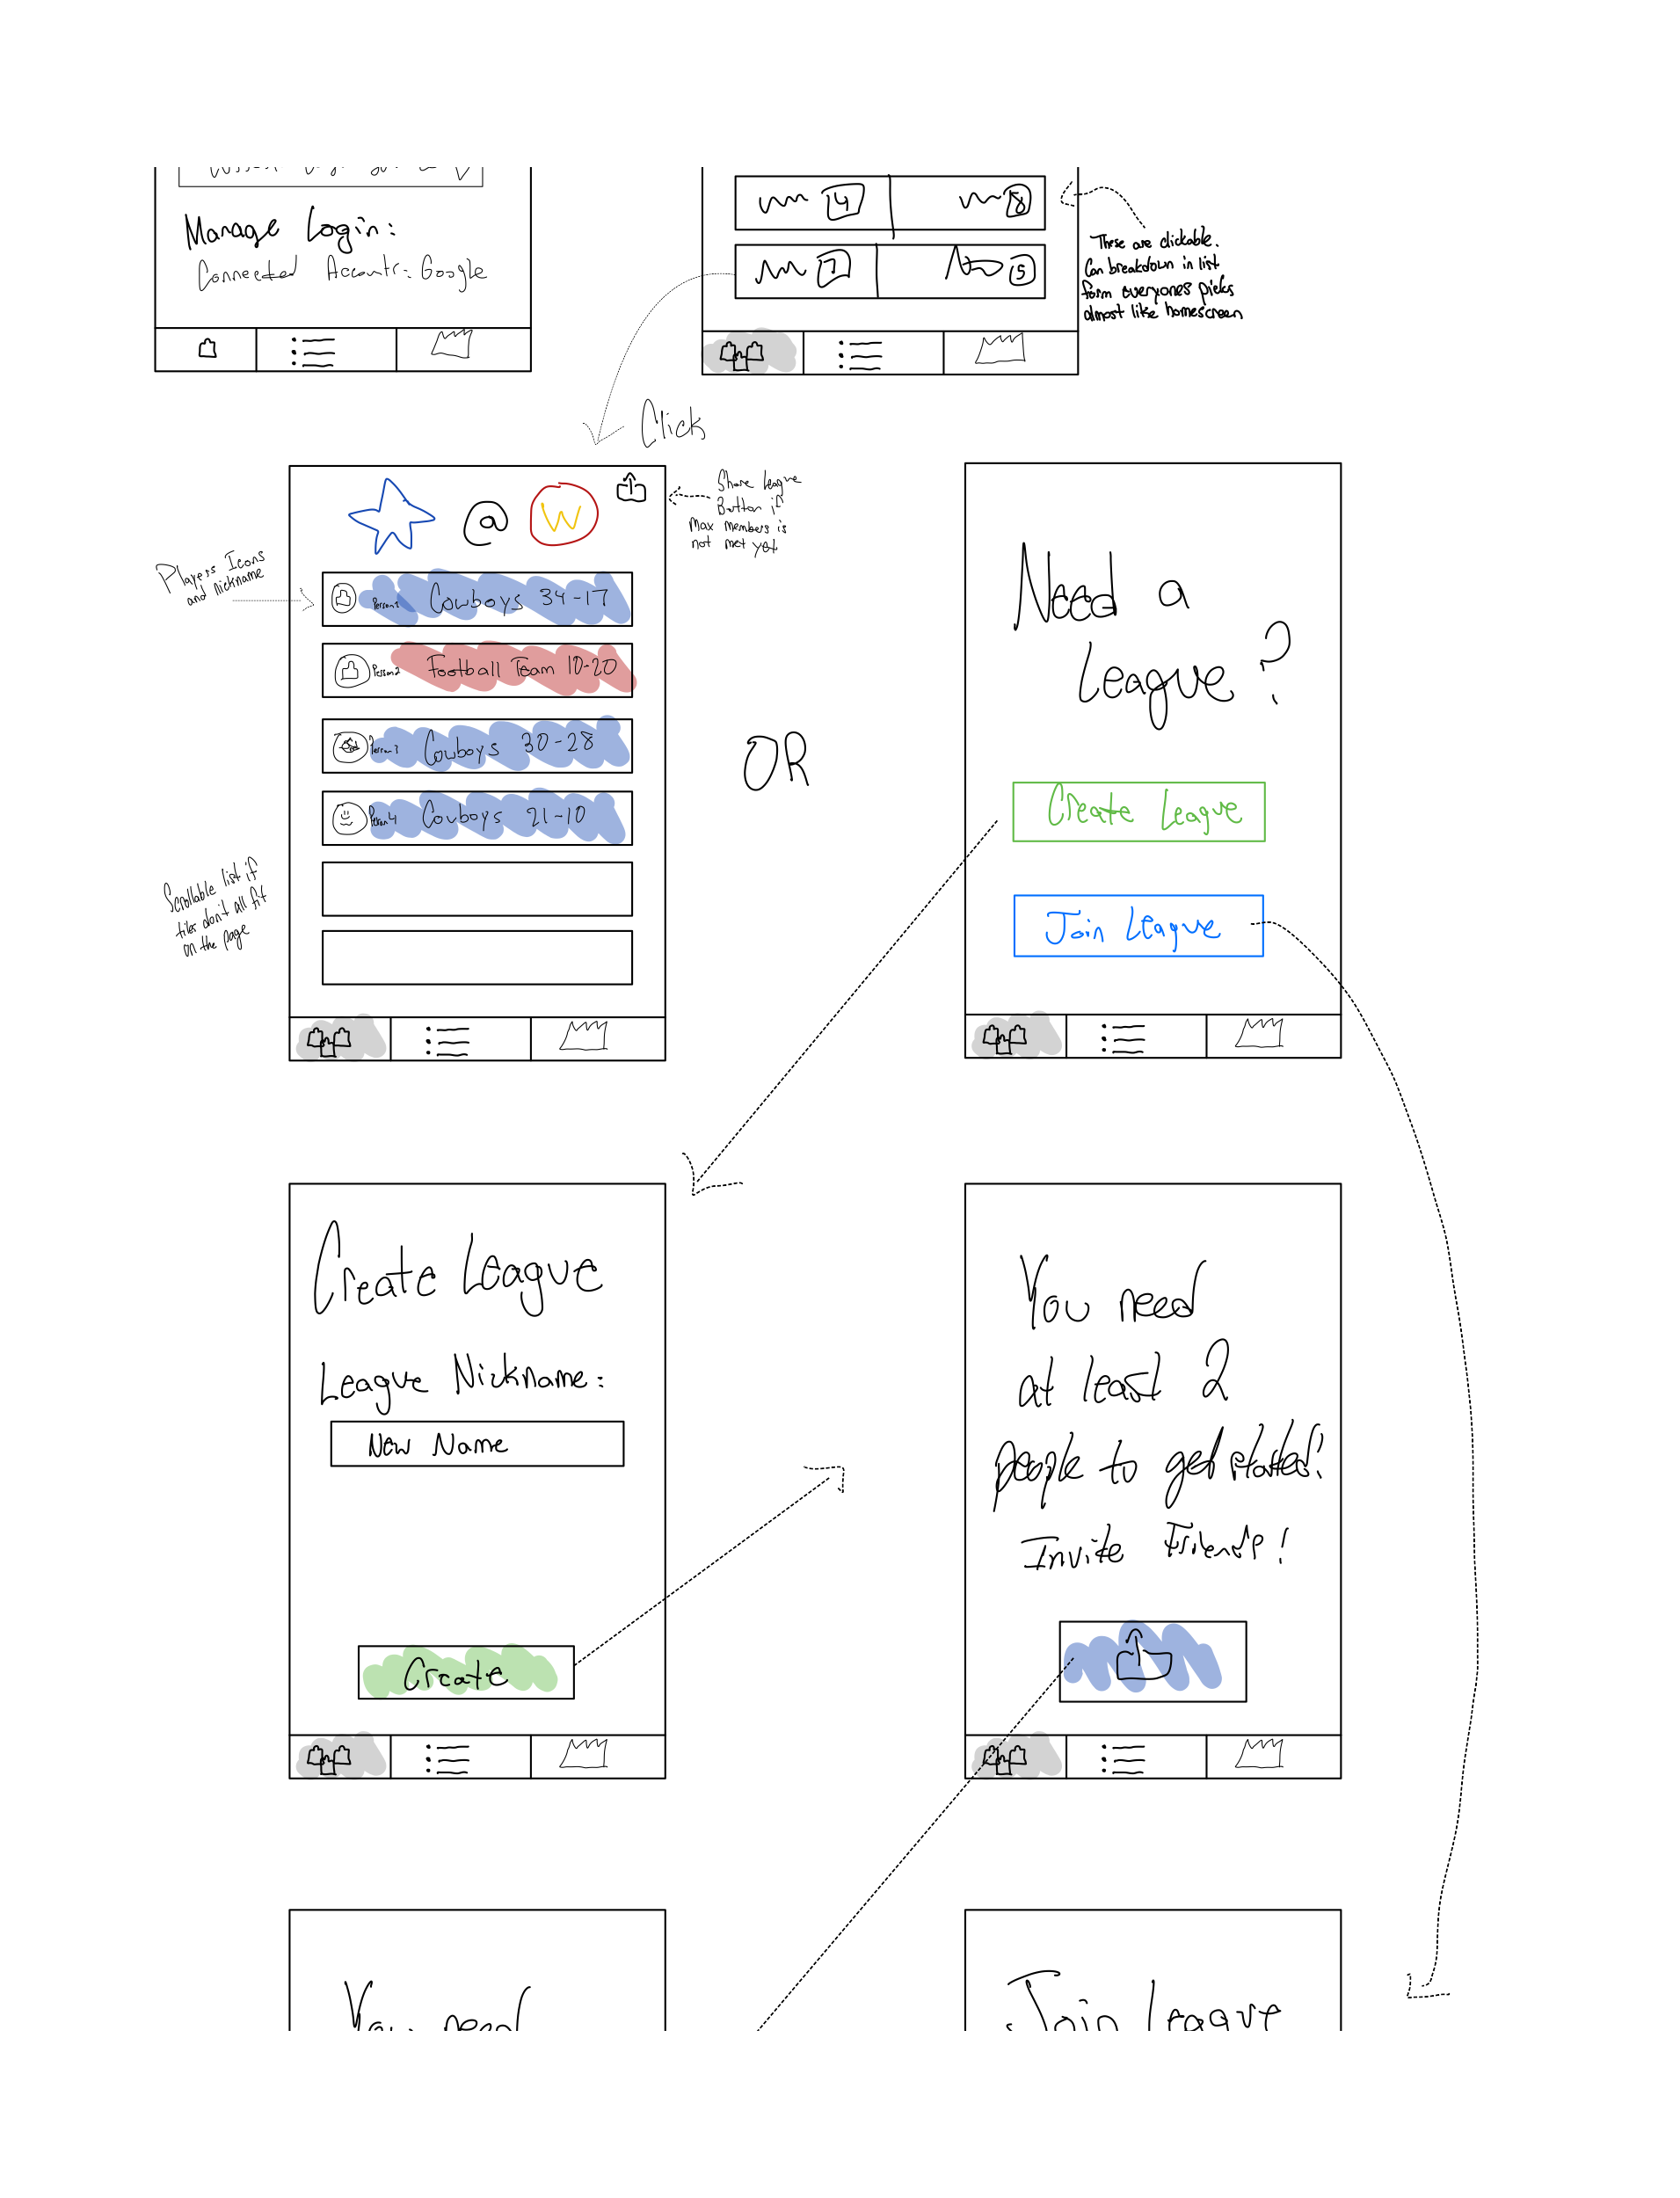 Manage Login:
Connected Accounts: Google
4
8
7
5
These are clickable.
Can breakdown in list
form everyones picks
almost like homescreen
Click
@
W
Share League
Button if
Max members is
not met yet
Players Icons
and nickname
Person1 Cowboys 34-17
Person2 Football Team 10-20
Person3 Cowboys 30-28
Person4 Cowboys 21-10
Scrollable list if
tiles don't all fit
on the page
OR
Need a
League?
Create League
Join League
Create League
League Nickname:
New Name
Create
You need
at least 2
people to get started!
Invite Friends!
You need
Join League